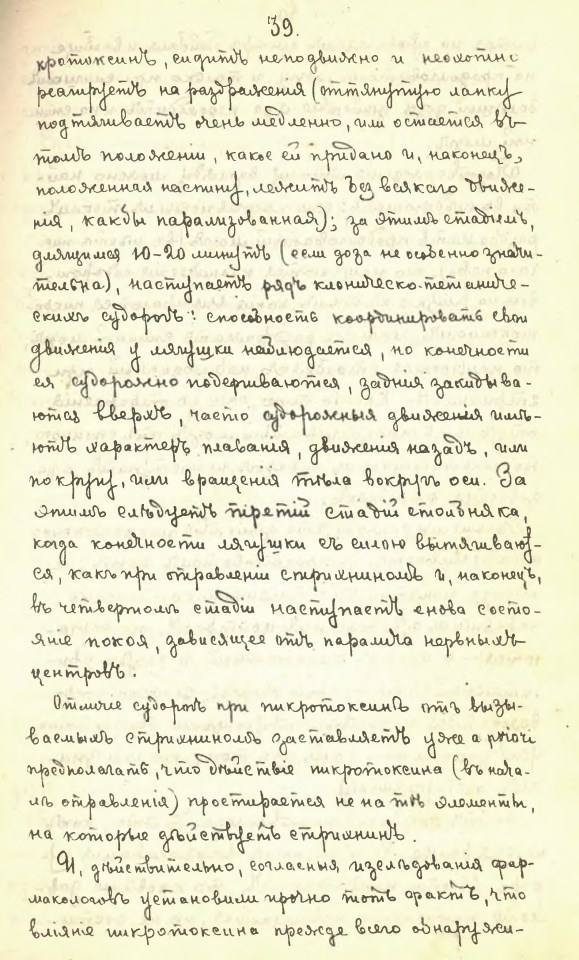 39.
кротоксинъ, сидитъ неподвижно и неохотно
реагируетъ на раздраженія (оттянутую лапку
подтягиваетъ очень медленно, или остается въ
томъ положеніи, какое ей придано и, наконецъ,
положенная на спину, лежитъ безъ всякаго движе-
нія, какъ бы парализованная); за этимъ стадіемъ,
длящимся 10-20 минутъ (если доза не особенно значи-
тельна), наступаетъ рядъ клоническо-тетаниче-
скихъ судорогъ: способность координировать свои
движенія у лягушки наблюдается, но конечности
ея судорожно подергиваются, заднія закидыва-
ются вверхъ, часто судорожныя движенія имѣ-
ютъ характеръ плаванія, движенія назадъ, или
по кругу, или вращенія тѣла вокругъ оси. За
этимъ слѣдуетъ третій стадій столбняка,
когда конечности лягушки съ силою вытягиваю-
ся, какъ при отравленіи стрихниномъ и, наконецъ,
въ четвертомъ стадіи наступаетъ снова состо-
яніе покоя, зависящее отъ паралича нервныхъ
центровъ.
Отличіе судорогъ при пикротоксинѣ отъ вызы-
ваемыхъ стрихниномъ заставляетъ уже a priori
предполагать, что дѣйствіе пикротоксина (въ нача-
лѣ отравленія) простирается не на тѣ элементы,
на которые дѣйствуетъ стрихнинъ.
И, дѣйствительно, согласныя изслѣдованія фар-
макологовъ установили прочно тотъ фактъ, что
вліяніе пикротоксина прежде всего обнаружи-